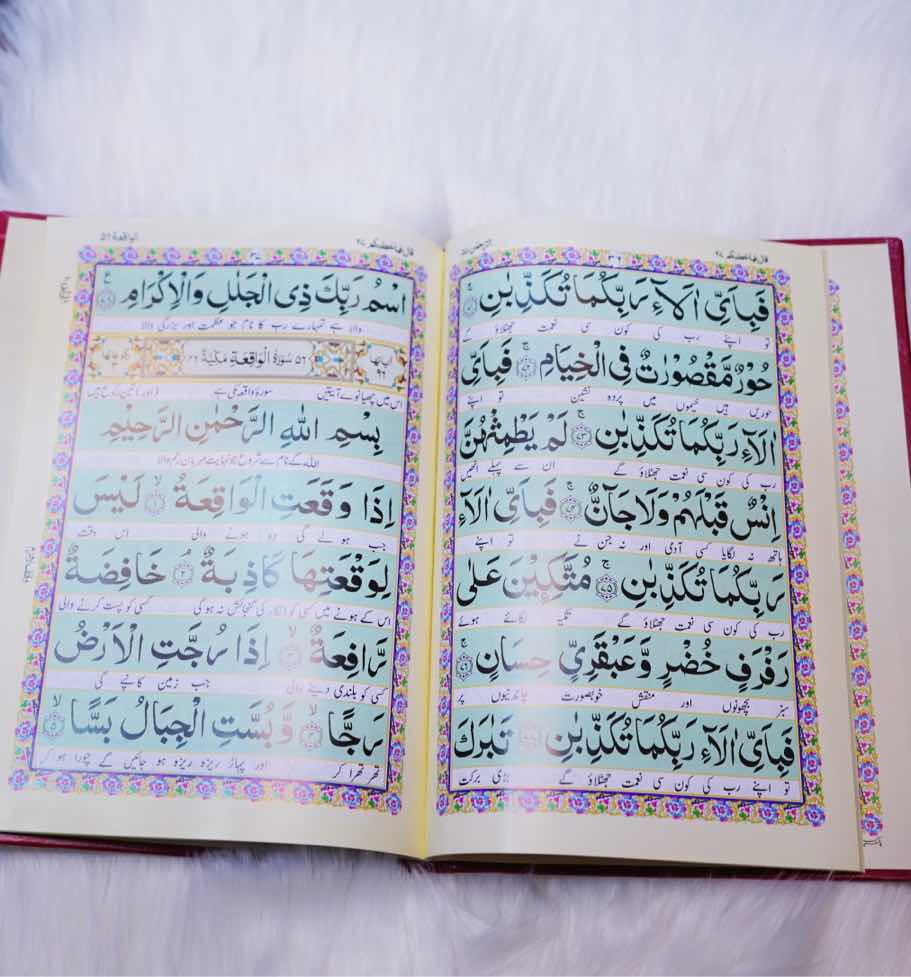 قال فما خطبكم ٢٧
فَبِاَيِّ اٰلَآءِ رَبِّكُمَا تُكَذِّبٰنِ
تو اپنے رب کی کون سی نعمت جھٹلاؤ گے
حُوْرٌ مَّقْصُوْرٰتٌ فِی الْخِیَامِ ۚ فَبِاَیِّ
حوریں ہیں خیموں میں پردہ نشین تو اپنے
اٰلَآءِ رَبِّكُمَا تُكَذِّبٰنِ ۚ لَمْ یَطْمِثْهُنَّ
رب کی کون سی نعمت جھٹلاؤ گے ان سے پہلے انھیں
اِنْسٌ قَبْلَهُمْ وَلَا جَآنٌّ ۚ فَبِاَیِّ اٰلَآءِ
ہاتھ نہ لگایا کسی آدمی اور نہ جن نے تو اپنے
رَبِّكُمَا تُكَذِّبٰنِ ۚ مُتَّكِـِٕیْنَ عَلٰی
رب کی کون سی نعمت جھٹلاؤ گے تکیہ لگائے ہوئے
رَفْرَفٍ خُضْرٍ وَّعَبْقَرِیٍّ حِسَانٍ ۚ
سبز بچھونوں اور منقش خوبصورت چاندنیوں پر
فَبِاَیِّ اٰلَآءِ رَبِّكُمَا تُكَذِّبٰنِ تَبٰرَكَ
تو اپنے رب کی کون سی نعمت جھٹلاؤ گے بڑی برکت
الواقعة ٥٦
قال فما خطبكم ٢٧
اسْمُ رَبِّكَ ذِی الْجَلٰلِ وَالْاِكْرَامِ
والا ہے تمہارے رب کا نام جو عظمت اور بزرگی والا
اٰیاتها ٩٦ ٥٦ سُوْرَةُ الْوَاقِعَةِ مَكِّیَّةٌ ٤٦ رکوعاتها ٣
اس میں چھیانوے آیتیں سورۂ واقعہ مکی ہے (اور) تین رکوع ہیں
بِسْمِ اللّٰهِ الرَّحْمٰنِ الرَّحِیْمِ
اللہ کے نام سے شروع جو نہایت مہربان رحم والا
اِذَا وَقَعَتِ الْوَاقِعَةُ ۙ لَیْسَ
جب ہو لے گی وہ ہونے والی اس وقت
لِوَقْعَتِهَا كَاذِبَةٌ ۘ خَافِضَةٌ
اس کے ہونے میں کسی کو انکار کی گنجائش نہ ہو گی کسی کو پست کرنے والی
رَّافِعَةٌ ۙ اِذَا رُجَّتِ الْاَرْضُ
کسی کو بلندی دینے والی جب زمین کانپے گی
رَجًّا ۙ وَّبُسَّتِ الْجِبَالُ بَسًّا ۙ
تھر تھرا کر اور پہاڑ ریزہ ریزہ ہو جائیں گے چورا ہو کر